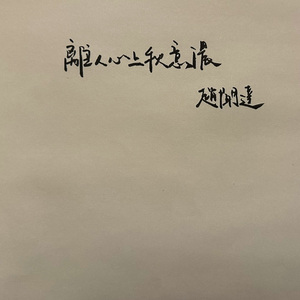 離人心上秋意濃
趙明達